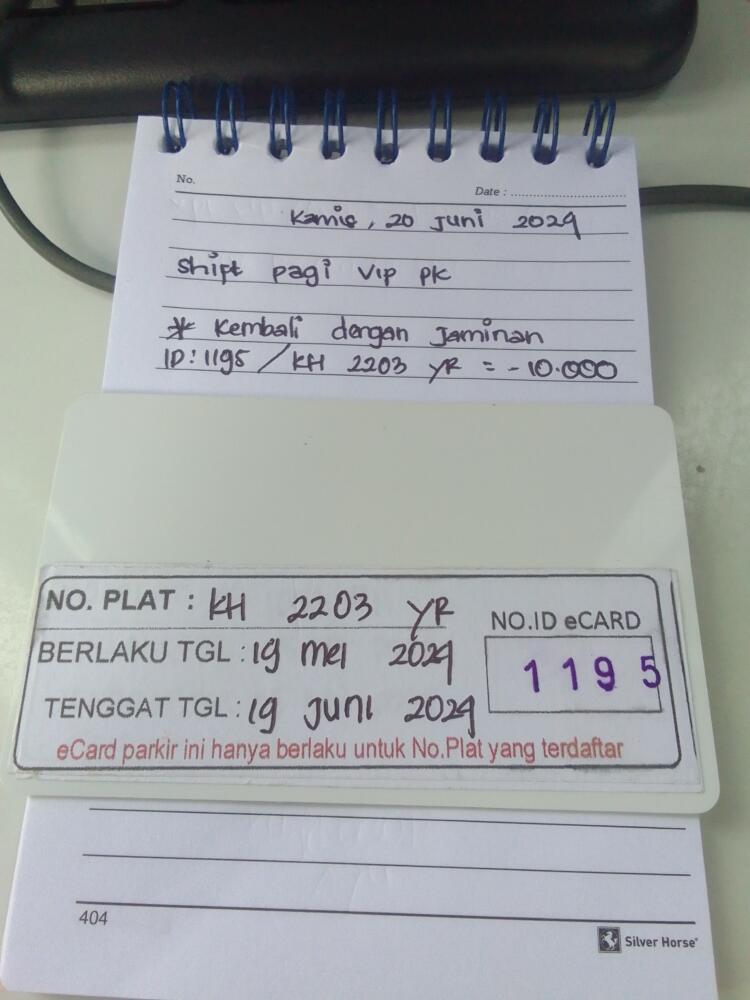 No.
Date :
Kamis, 20 Juni 2024
Shift pagi VIP PK
* Kembali dengan Jaminan
ID: 1195 / KH 2203 YR = - 10.000
NO. PLAT : KH 2203 YR
NO.ID eCARD
BERLAKU TGL : 19 Mei 2024
1195
TENGGAT TGL : 19 Juni 2024
eCard parkir ini hanya berlaku untuk No.Plat yang terdaftar
404
Silver Horse